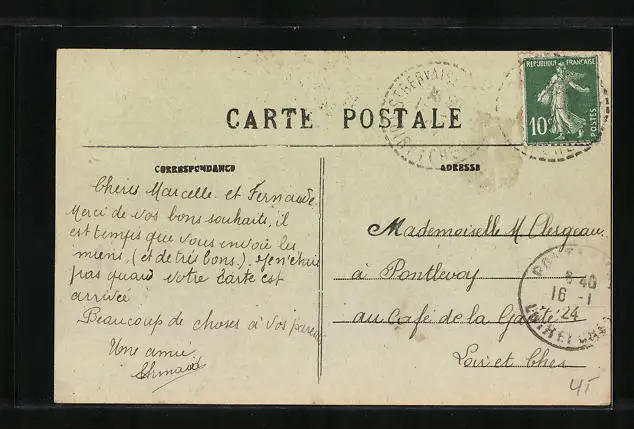 CARTE POSTALE
REPUBLIQUE FRANÇAISE
10c
POSTES
CORRESPONDANCE
ADRESSE
Chères Marcelle et Fernande
Merci de vos bons souhaits, il
est temps que vous envoie les
miens, (et de très bons). Je n'étais
pas quand votre carte est
arrivée
Beaucoup de choses à vos parents
Une amie
Mademoiselle M Clergeau
à Pontlevoy
au Café de la Gare
Loir et Cher
8 40
16 -1
24
LOIR ET CHER
45